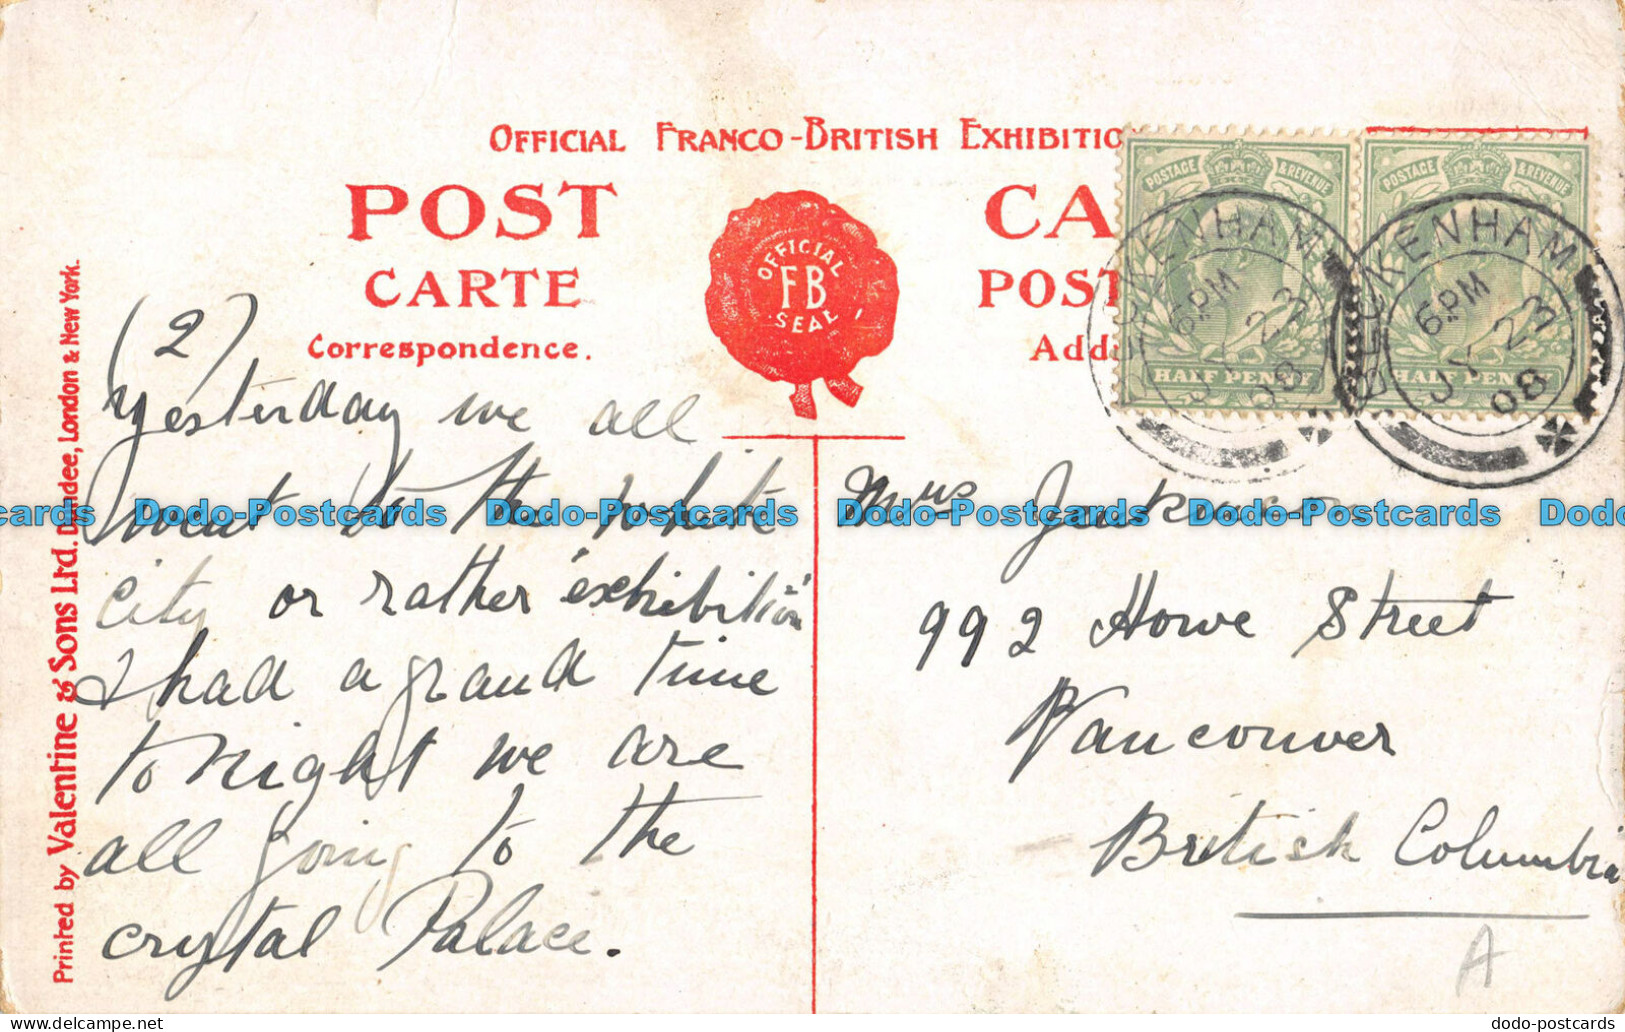 OFFICIAL FRANCO-BRITISH EXHIBITIO
POST CA
CARTE POST
Correspondence. Add
OFFICIAL
FB
SEAL
POSTAGE & REVENUE
HALF PENNY
POSTAGE & REVENUE
HALF PENNY
BECKENHAM
6PM
JY 23
08
BECKENHAM
6PM
JY 23
08
(2)
Yesterday we all
went to the white
City or rather "exhibition"
I had a grand time
tonight we are
all going to the
crystal Palace.
Mrs
992 Howe Street
Vancouver
British Columbia
A
Printed by Valentine & Sons Ltd. Dundee, London & New York.
Postcards Dodo-Postcards Dodo-Postcards Dodo-Postcards Dodo-Postcards Dodo
delcampe.net
dodo-postcards